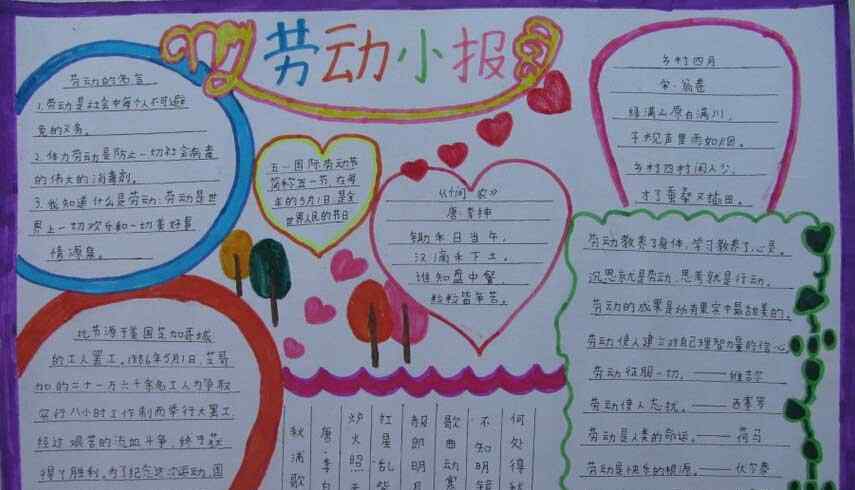 劳动小报
劳动的名言
1.劳动是社会中每个人不可避
免的义务。
2.体力劳动是防止一切社会病毒
的伟大的消毒剂。
3.我知道什么是劳动:劳动是世
界上一切欢乐和一切美好事
情源泉。
五一国际劳动节
简称五一节,在每
年的5月1日,是全
世界人民的节日
《悯农》
唐·李绅
锄禾日当午,
汗滴禾下土。
谁知盘中餐,
粒粒皆辛苦。
乡村四月
宋·翁卷
绿满山原白满川,
子规声里雨如烟。
乡村四月闲人少,
才了蚕桑又插田。
此节源于美国芝加哥城
的工人罢工。1886年5月1日,芝哥
加的二十一万六千余名工人为争取
实行八小时工作制而举行大罢工,
经过艰苦的流血斗争,终于获
得了胜利。为了纪念这次运动,国
劳动教养了身体,学习教养了心灵。
沉思就是劳动,思考就是行动。
劳动的成果是所有果实中最甜美的。
劳动使人建立对自己理智力量的信心。
劳动征服一切。——维吉尔
劳动使人忘忧。——西塞罗
劳动是人类的命运。——荷马
劳动是快乐的根源。——伏尔泰
何处得秋
不知明镜
歌曲动寒
郝郎明月
红星乱紫
炉火照天
唐·李白
秋浦歌